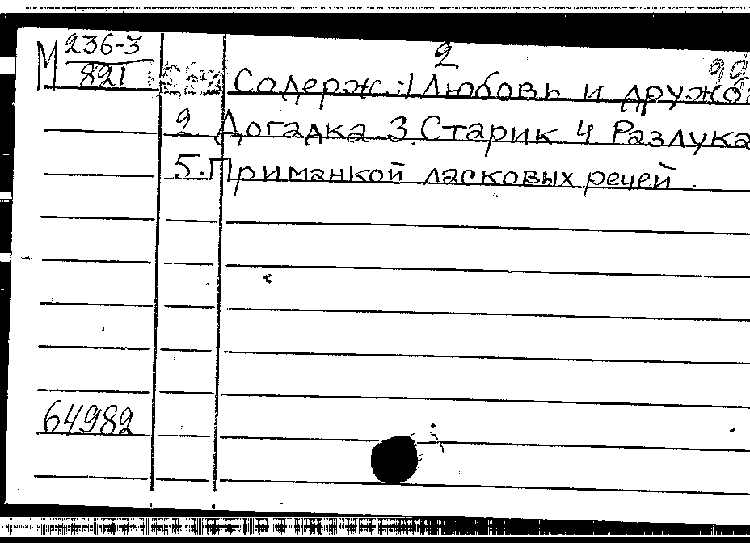 2
М 236-3
821
Содерж.: 1 Любовь и
2 Догадка 3. Старик 4 Разлука
5. Приманкой ласковых речей.
64982